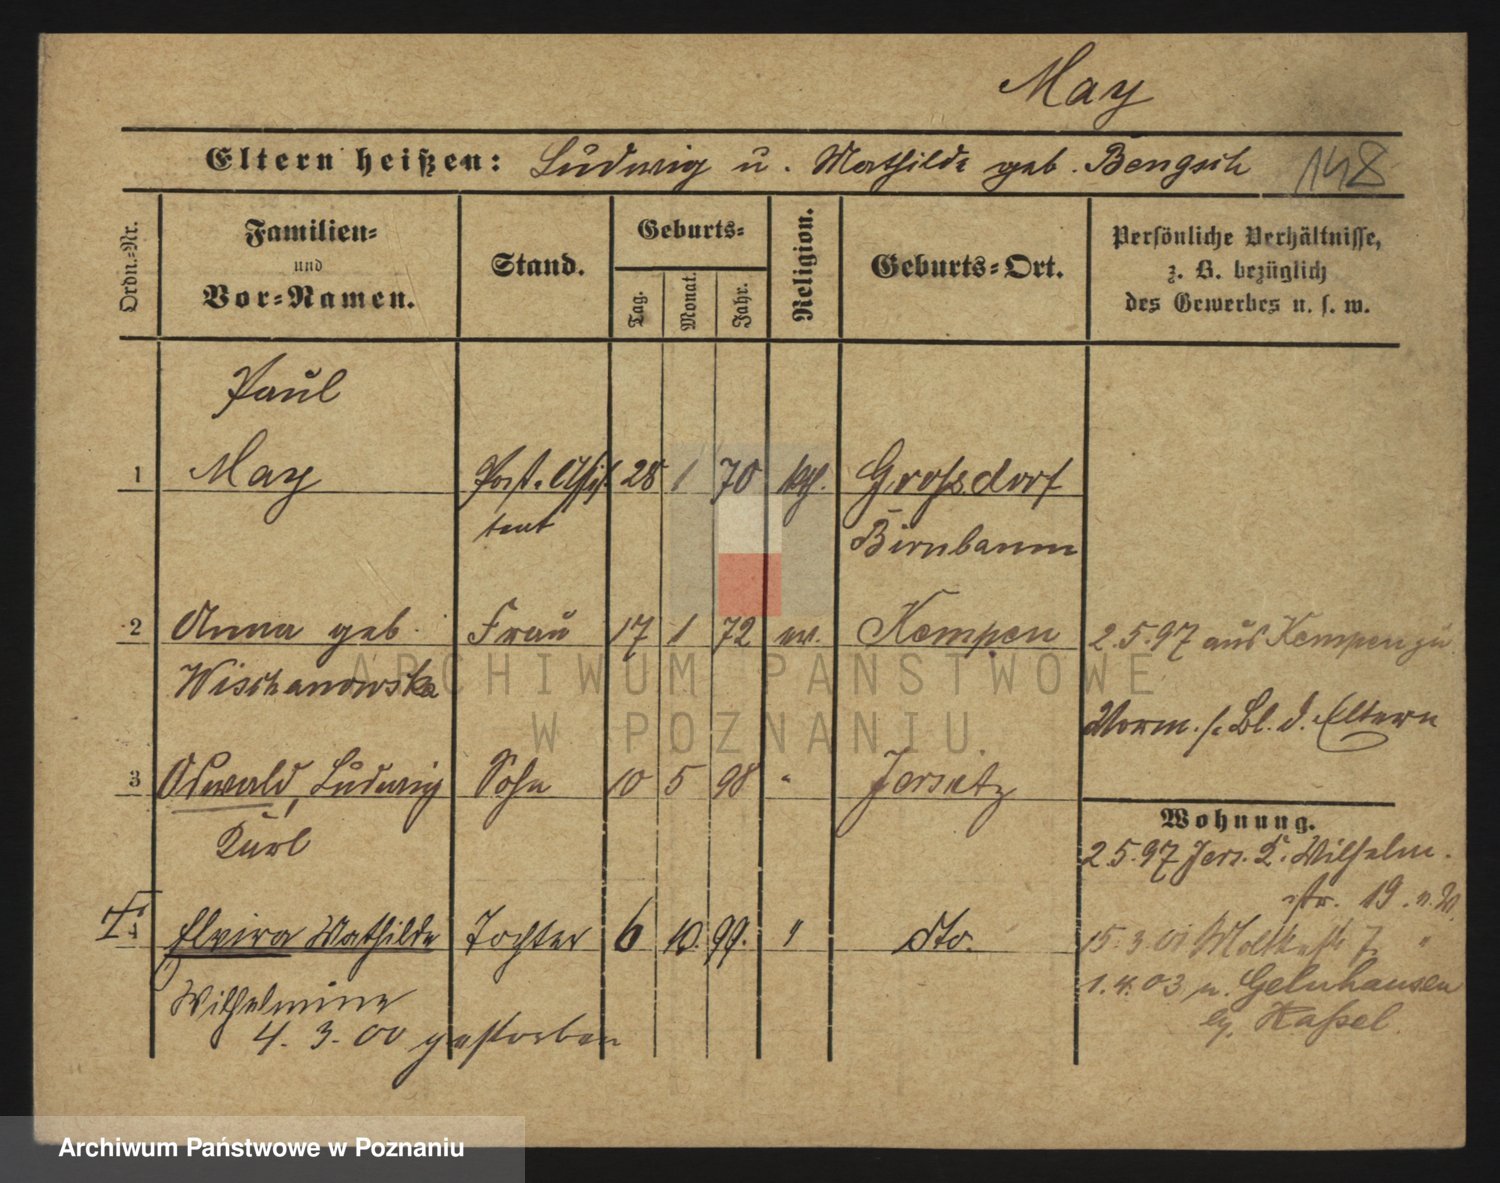 May
Eltern heißen: Ludwig u. Mathilde geb. Bengsch 148
Ordn.-Nr.
Familien-
und
Vor-Namen.
Stand.
Geburts-
Tag.
Monat.
Jahr.
Religion.
Geburts-Ort.
Persönliche Verhältnisse,
z. B. bezüglich
des Gewerbes u. s. w.
Paul
1 May Post-Assis- 28 1 70 Grossdorf
tent Birnbaum
2 Anna geb. Frau 17 1 72 ev. Kempen 2.5.97 aus Kempen zu
Wischanowska
Vorm. s. Bl. d. Eltern
3 Oswald, Ludwig Sohn 10 5 98 " Jersitz
Karl
Wohnung.
2.5.97 Jers. K. Wilhelm-
str. 19
4 Elvira Mathilde Tochter 6 10. 99. " dto. 15.3.01 Moltkestr 7 "
Wilhelmine 1.4.03 n. Gelnhausen
4. 3. 00 gestorben Kassel.
ARCHIWUM PAŃSTWOWE
W POZNANIU.
Archiwum Państwowe w Poznaniu